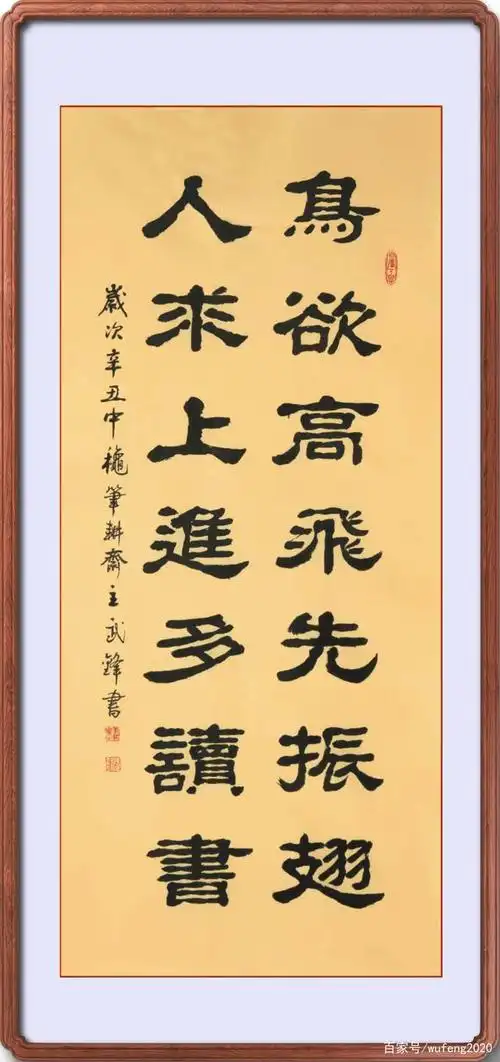 鳥欲高飛先振翅
人求上進多讀書
歲次辛丑中穐筆耕齋主武鋒書
百家号/wufeng2020